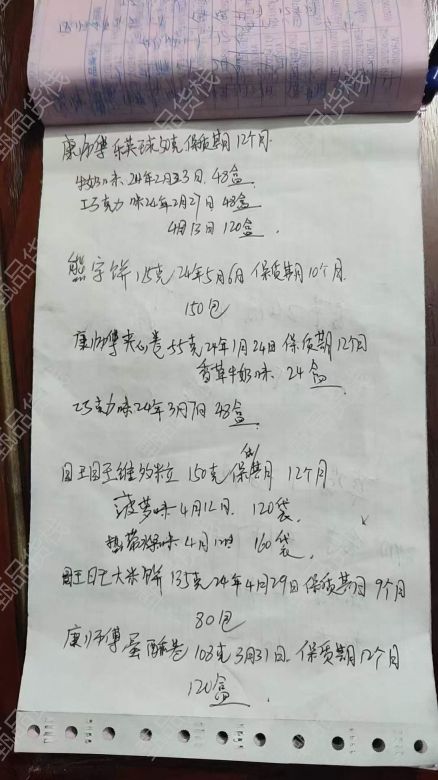 康师傅乐芙球50克保质期12个月
牛奶味 24年2月23日 48盒
巧克力味24年2月27日 48盒
4月13日 120盒
熊字饼 115克 24年5月6日 保质期10个月
150包
康师傅夹心卷 55克24年1月24日 保质期12个月
香草牛奶味 24盒
巧克力味24年3月7日 48盒
旺旺维多粒 150克 保质期 12个月
菠萝味 4月12日 120袋
热带味 4月12日 160袋
旺旺大米饼 135克 24年4月29日 保质期 9个月
80包
康师傅蛋酥卷 108克 3月31日 保质期12个月
120盒
甄品货栈